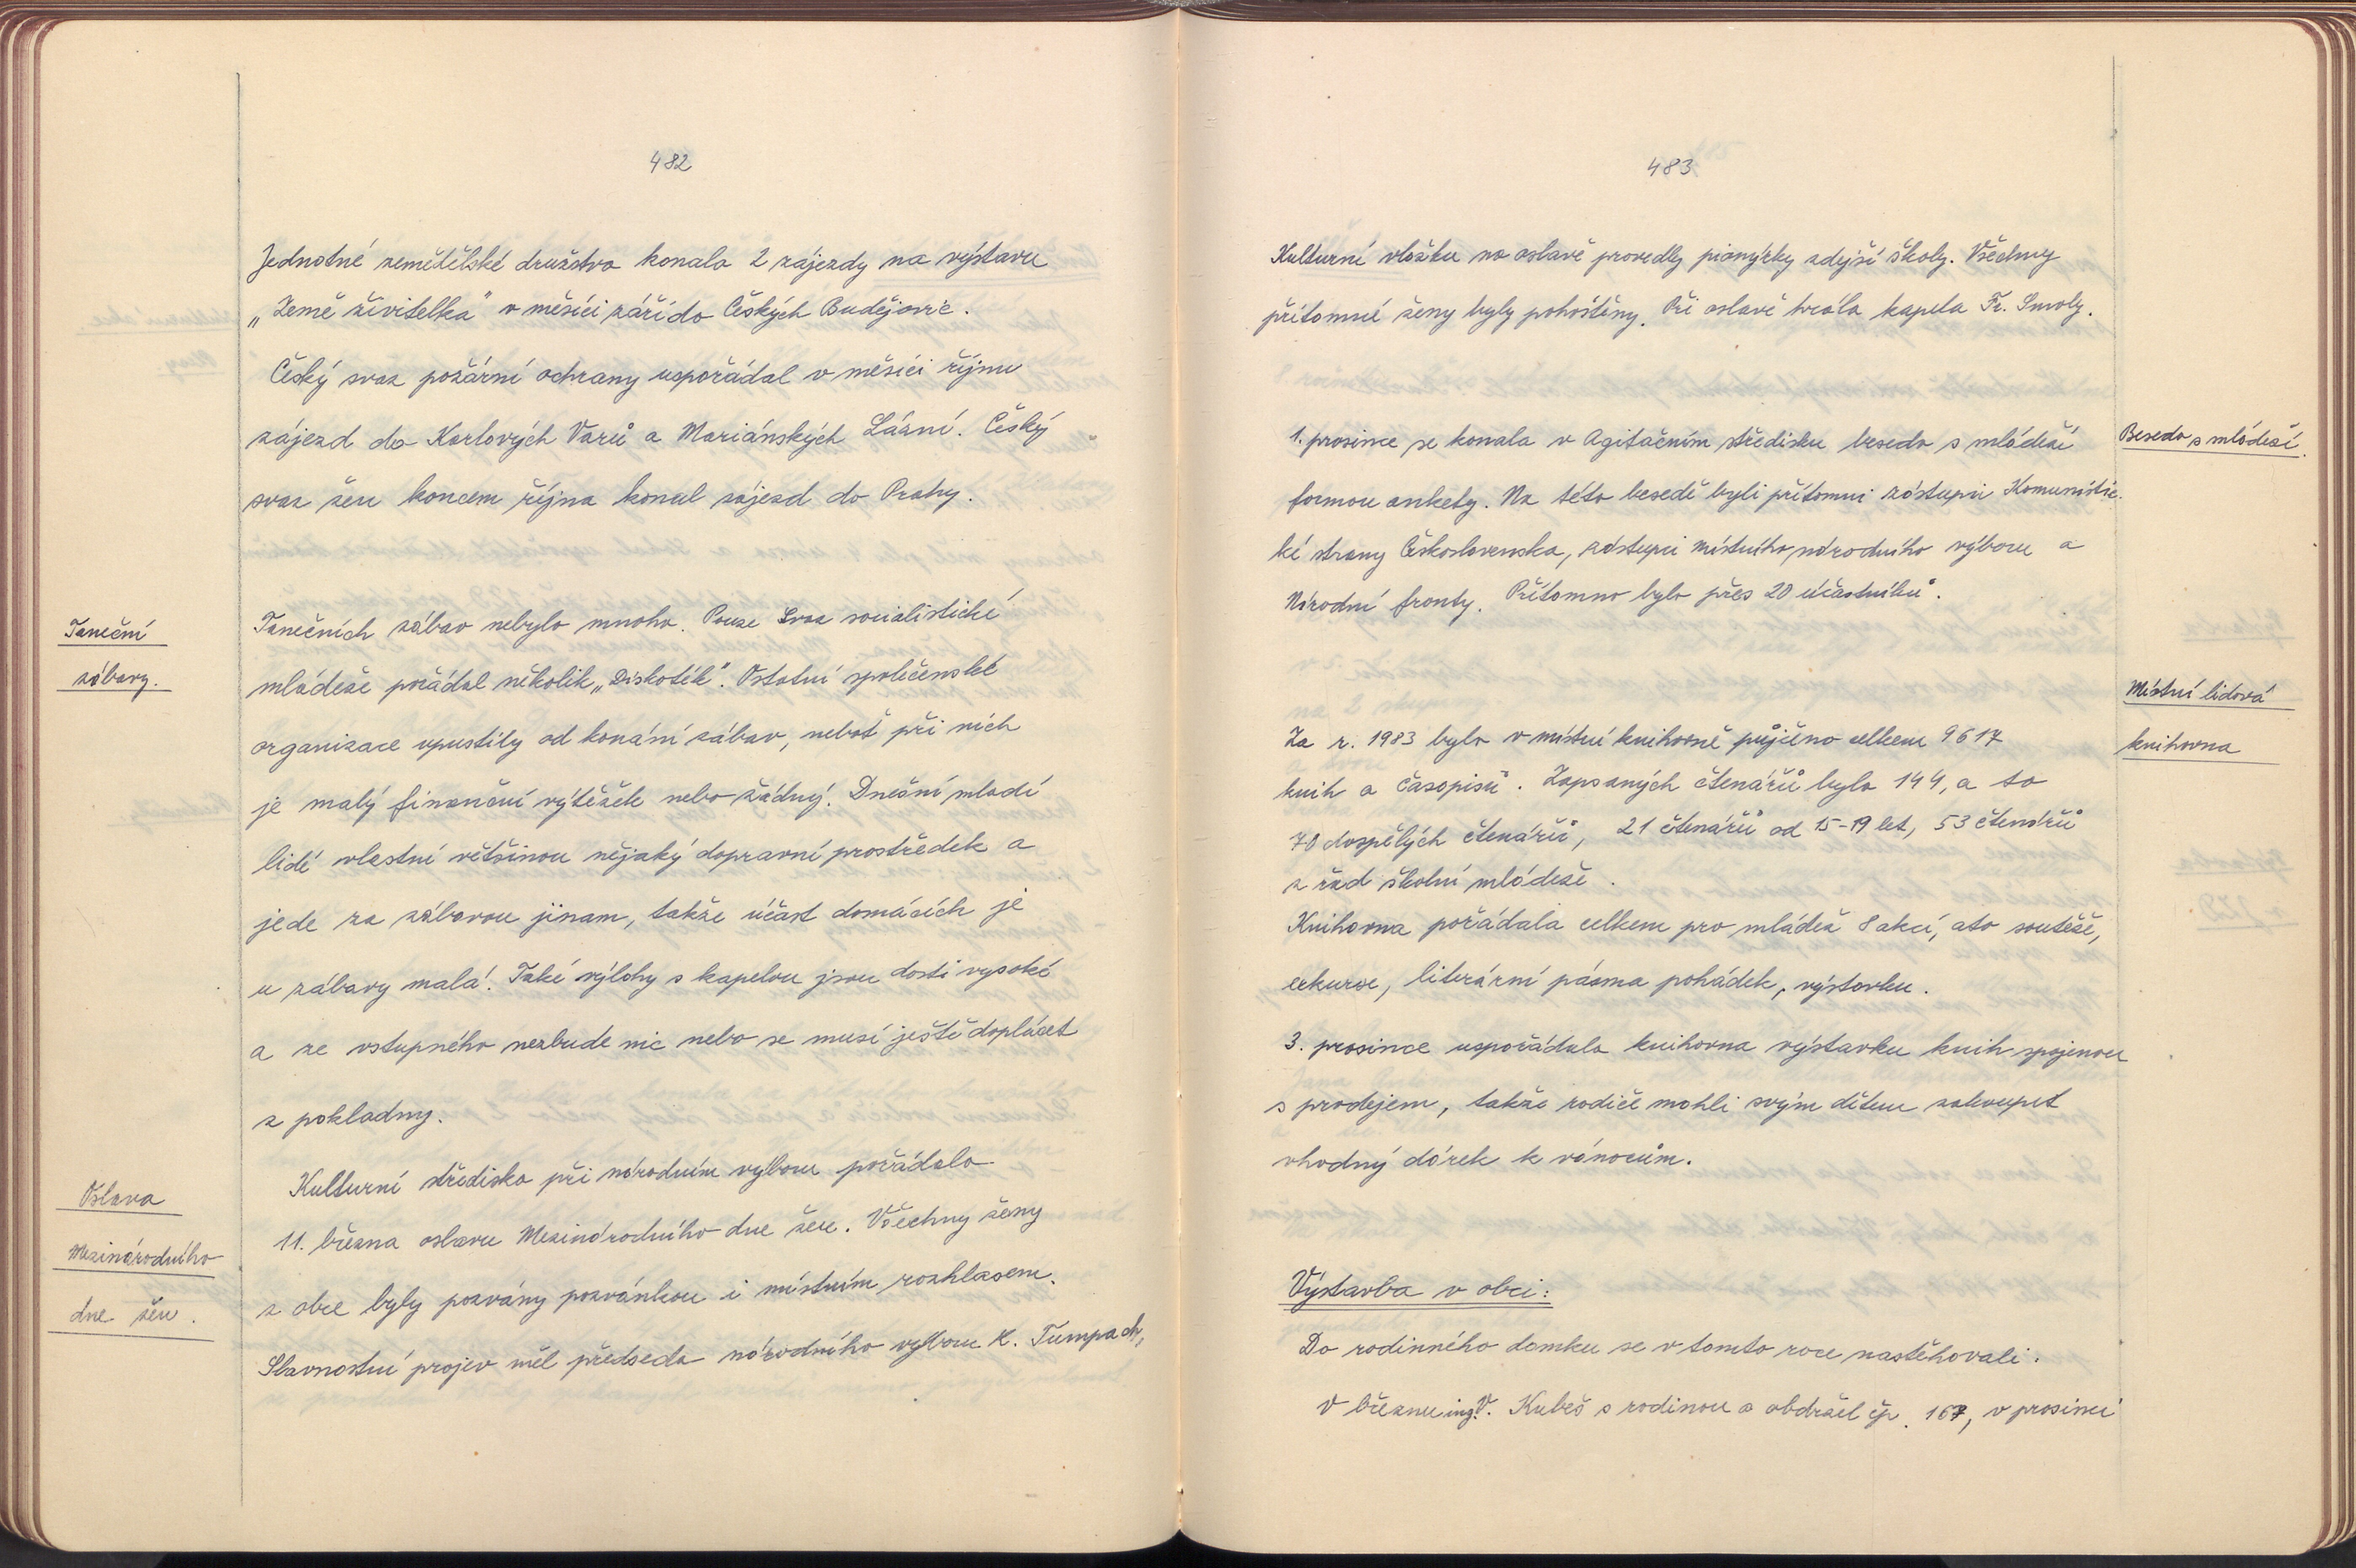 482
Jednotné zemědělské družstvo konalo 2 zájezdy na výstavu
„Země živitelka" v měsíci září do Českých Budějovic.
Český svaz požární ochrany uspořádal v měsíci říjnu
zájezd do Karlových Varů a Mariánských Lázní. Český
svaz žen koncem října konal zájezd do Prahy.
Taneční
zábavy.
Tanečních zábav nebylo mnoho. Pouze Svaz socialistické
mládeže pořádal několik „Diskoték". Ostatní společenské
organizace upustily od konání zábav, neboť při nich
je malý finanční výtěžek nebo žádný. Dnešní mladí
lidé vlastní většinou nějaký dopravní prostředek a
jede za zábavou jinam, takže účast domácích je
u zábavy malá. Také výlohy s kapelou jsou dosti vysoké
a ze vstupného nezbude nic nebo se musí ještě doplácet
z pokladny.
Oslava
Mezinárodního
dne žen.
Kulturní středisko při národním výboru pořádalo
11. března oslavu Mezinárodního dne žen. Všechny ženy
z obce byly pozvány pozvánkou i místním rozhlasem.
Slavnostní projev měl předseda národního výboru K. Tumpach,
483
Kulturní vložku na oslavě provedly pionýrky zdejší školy. Všechny
přítomné ženy byly pohoštěny. Při oslavě hrála kapela Fr. Smoly.
Beseda s mládeží.
1. prosince se konala v Agitačním středisku beseda s mládeží
formou ankety. Na této besedě byli přítomni zástupci Komunistic-
ké strany Československa, zástupci místního národního výboru a
Národní fronty. Přítomno bylo přes 20 účastníků.
Místní lidová
knihovna
Za r. 1983 bylo v místní knihovně půjčeno celkem 9617
knih a časopisů. Zapsaných čtenářů bylo 144, a to
70 dospělých čtenářů, 21 čtenářů od 15-19 let, 53 čtenářů
z řad školní mládeže.
Knihovna pořádala celkem pro mládež 8 akcí, a to soutěže,
exkurse, literární pásma pohádek, výstavku.
3. prosince uspořádala knihovna výstavku knih spojenou
s prodejem, takže rodiče mohli svým dětem zakoupit
vhodný dárek k vánocům.
Výstavba v obci:
Do rodinného domku se v tomto roce nastěhovali.
V březnu ing. V. Kubeš s rodinou a obdržel čp. 167, v prosinci